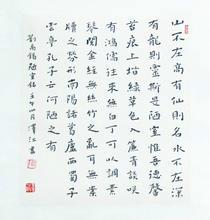 山不在高有仙則名水不在深
有龍則靈斯是陋室惟吾德馨
苔痕上階綠草色入簾青談笑
有鴻儒往来無白丁可以調素
琴閱金經無絲竹之亂耳無案
牘之勞形南陽諸葛廬西蜀子
雲亭孔子云何陋之有
劉禹錫陋室銘 午四月 江書